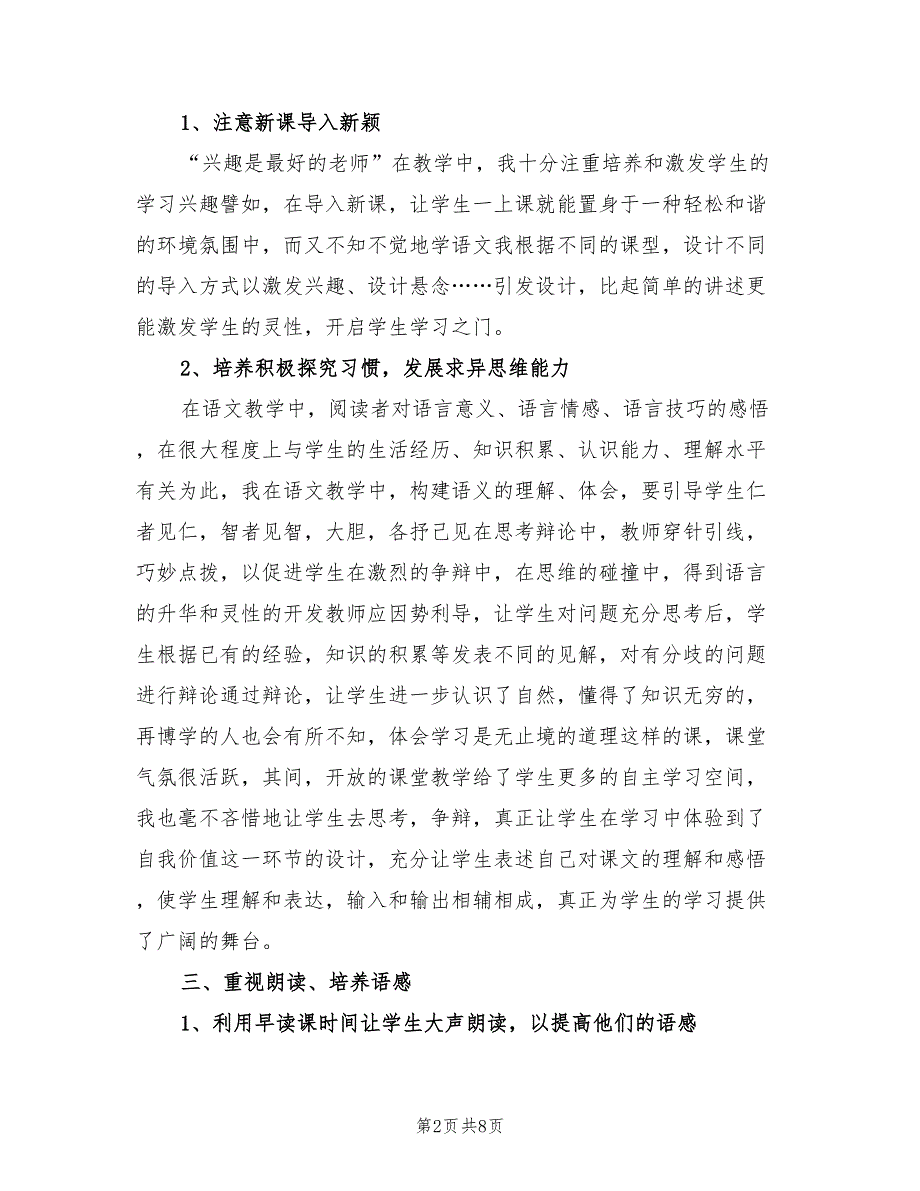 1、注意新课导入新颖
“兴趣是最好的老师”在教学中，我十分注重培养和激发学生的
学习兴趣譬如，在导入新课，让学生一上课就能置身于一种轻松和谐
的环境氛围中，而又不知不觉地学语文我根据不同的课型，设计不同
的导入方式以激发兴趣、设计悬念……引发设计，比起简单的讲述更
能激发学生的灵性，开启学生学习之门。
2、培养积极探究习惯，发展求异思维能力
在语文教学中，阅读者对语言意义、语言情感、语言技巧的感悟
，在很大程度上与学生的生活经历、知识积累、认识能力、理解水平
有关为此，我在语文教学中，构建语义的理解、体会，要引导学生仁
者见仁，智者见智，大胆，各抒己见在思考辩论中，教师穿针引线，
巧妙点拨，以促进学生在激烈的争辩中，在思维的碰撞中，得到语言
的升华和灵性的开发教师应因势利导，让学生对问题充分思考后，学
生根据已有的经验，知识的积累等发表不同的见解，对有分歧的问题
进行辩论通过辩论，让学生进一步认识了自然，懂得了知识无穷的，
再博学的人也会有所不知，体会学习是无止境的道理这样的课，课堂
气氛很活跃，其间，开放的课堂教学给了学生更多的自主学习空间，
我也毫不吝惜地让学生去思考，争辩，真正让学生在学习中体验到了
自我价值这一环节的设计，充分让学生表述自己对课文的理解和感悟
，使学生理解和表达，输入和输出相辅相成，真正为学生的学习提供
了广阔的舞台。
三、重视朗读、培养语感
1、利用早读课时间让学生大声朗读，以提高他们的语感
第2页 共8页